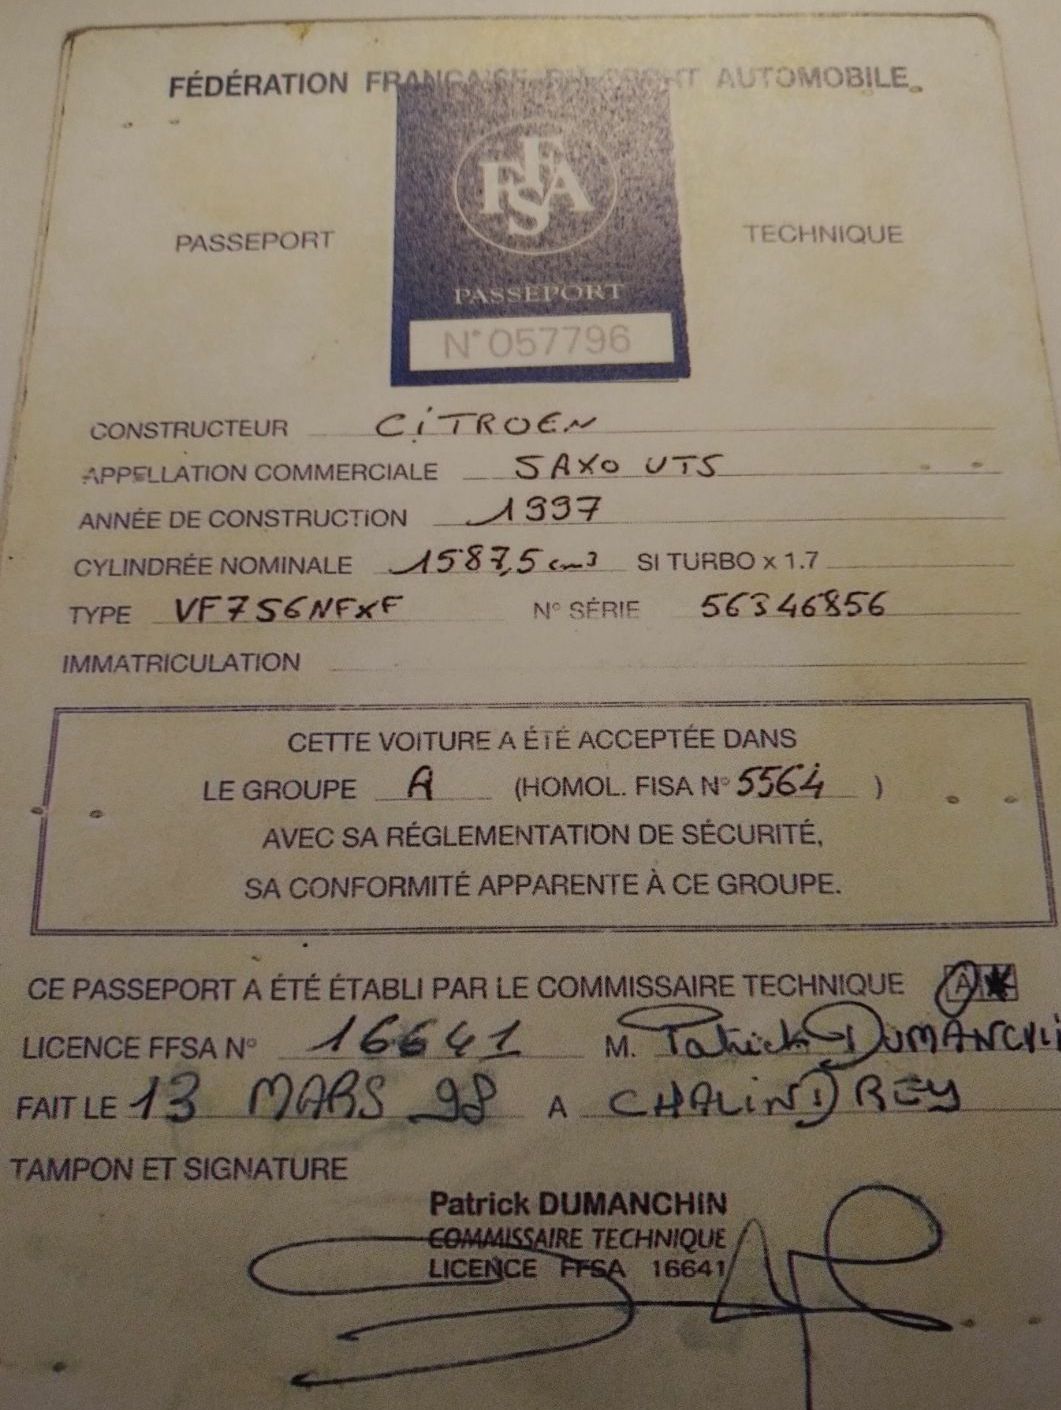 FÉDÉRATION FRANÇAISE DU SPORT AUTOMOBILE
FFSA
PASSEPORT
TECHNIQUE
PASSEPORT
N° 057796
CONSTRUCTEUR CiTROEN
APPELLATION COMMERCIALE SAXO VTS
ANNÉE DE CONSTRUCTION 1997
CYLINDRÉE NOMINALE 1587,5 cm3 SI TURBO x 1.7
TYPE VF7S6NFXF N° SÉRIE 56346856
IMMATRICULATION
CETTE VOITURE A ÉTÉ ACCEPTÉE DANS
LE GROUPE A (HOMOL. FISA N° 5564 )
AVEC SA RÉGLEMENTATION DE SÉCURITÉ,
SA CONFORMITÉ APPARENTE À CE GROUPE.
CE PASSEPORT A ÉTÉ ÉTABLI PAR LE COMMISSAIRE TECHNIQUE A
LICENCE FFSA N° 16641 M. Patrick DUMANCHI
FAIT LE 13 MARS 98 A CHALiNDREY
TAMPON ET SIGNATURE
Patrick DUMANCHIN
COMMISSAIRE TECHNIQUE
LICENCE FFSA 16641